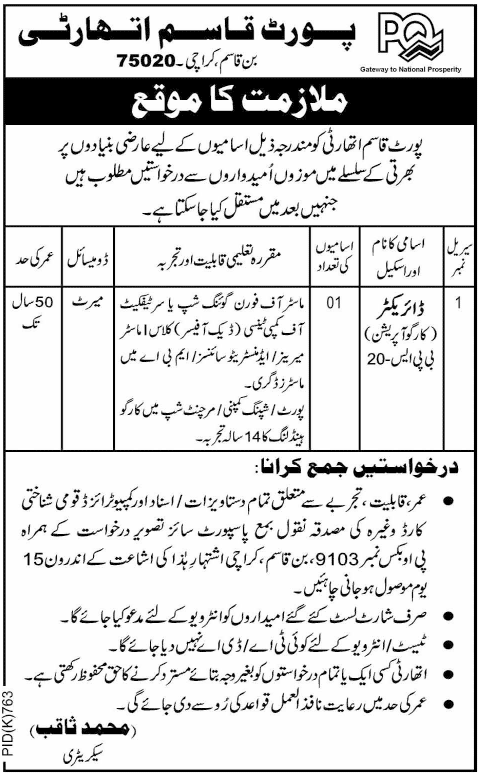 پورٹ قاسم اتھارٹی
بن قاسم، کراچی۔75020
PQA
Gateway to National Prosperity
ملازمت کا موقع
پورٹ قاسم اتھارٹی کو مندرجہ ذیل اسامیوں کے لیے عارضی بنیادوں پر
بھرتی کے سلسلے میں موزوں اُمیدواروں سے درخواستیں مطلوب ہیں
جنہیں بعد میں مستقل کیا جا سکتا ہے۔
سیریل نمبر
اسامی کا نام اور اسکیل
اسامیوں کی تعداد
مقررہ تعلیمی قابلیت اور تجربہ
ڈومیسائل
عمر کی حد
1
ڈائریکٹر
(کارگو آپریشن)
بی پی ایس-20
01
ماسٹر آف فورن گوئنگ شپ یا سرٹیفکیٹ
آف کمپی ٹینسی (ڈیک آفیسر) کلاس I ماسٹر
میریز/ایڈمنسٹریٹو سائنسز/ایم بی اے میں
ماسٹرز ڈگری۔
پورٹ/شپنگ کمپنی/مرچنٹ شپ میں کارگو
ہینڈلنگ کا 14 سالہ تجربہ۔
میرٹ
50 سال
تک
درخواستیں جمع کرانا:
● عمر، قابلیت، تجربے سے متعلق تمام دستاویزات/اسناد اور کمپیوٹرائزڈ قومی شناختی
کارڈ وغیرہ کی مصدقہ نقول بمع پاسپورٹ سائز تصویر درخواست کے ہمراہ
پی او بکس نمبر 9103، بن قاسم، کراچی اشتہار ہٰذا کی اشاعت کے اندرون 15
یوم موصول ہو جانی چاہئیں۔
● صرف شارٹ لسٹ کئے گئے امیدواروں کو انٹرویو کے لئے مدعو کیا جائے گا۔
● ٹیسٹ/انٹرویو کے لئے کوئی ٹی اے/ڈی اے نہیں دیا جائے گا۔
● اتھارٹی کسی ایک یا تمام درخواستوں کو بغیر وجہ بتائے مسترد کرنے کا حق محفوظ رکھتی ہے۔
● عمر کی حد میں رعایت نافذ العمل قواعد کی رُو سے دی جائے گی۔
(محمد ثاقب)
سیکریٹری
PID(K)763